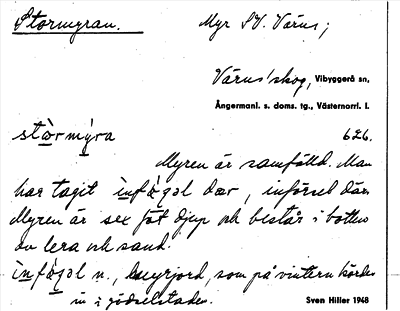 Stormyran. Myr SV. Värns;
Värns'skog, Vibyggerå sn,
Ångermanl. s. doms. tg., Västernorrl. l.
stòrmýra 626.
Myren är samfälld. Man
har tagit ìnfàgəl där, införsel där.
Myren är sex föt djup och består i botten
av lera och sand.
ìnfàgəl n., myrjord, som på vintern kördes
in i gödselstaden.
Sven Hiller 1948